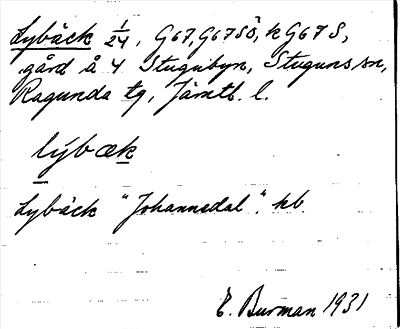 Lybäck 1/24, G67, G67SÖ, k G67S,
gård å 4 Stugubyn, Stuguns sn,
Ragunda tg, Jämtl. l.
lýbæk
Lybäck "Johannedal", kb.
E. Burman 1931